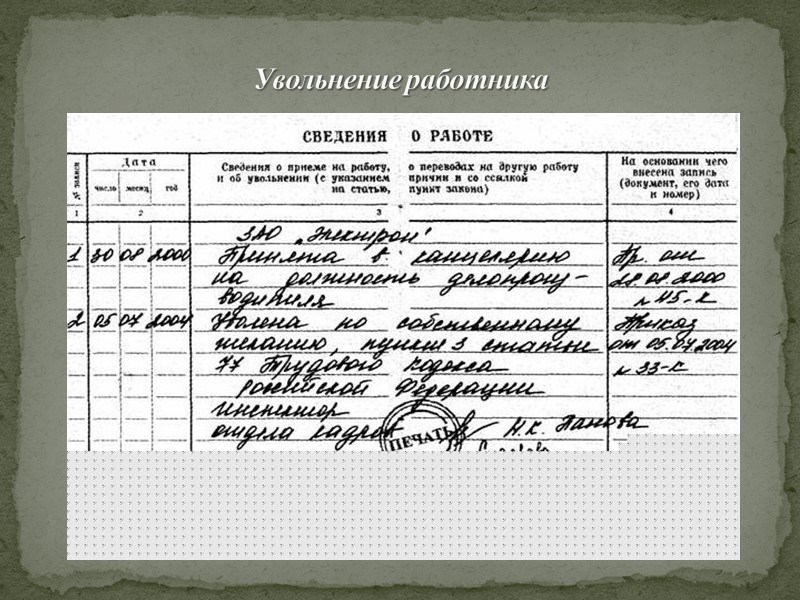 Увольнение работника
СВЕДЕНИЯ О РАБОТЕ
№ записи
Дата
число месяц год
Сведения о приеме на работу, о переводах на другую работу
и об увольнении (с указанием причин и со ссылкой
на статью, пункт закона)
На основании чего
внесена запись
(документ, его дата
и номер)
1 2 3 4
ЗАО "Электрон"
1 30 08 2000 Принята в канцелярию Пр. от
на должность делопроиз- 28.08.2000
водителя N 45-к
2 05 07 2004 Уволена по собственному Приказ
желанию, пункт 3 статьи от 05.07.2004
77 Трудового кодекса N 33-к
Российской Федерации
инспектор
отдела кадров Н.К. Панова
ПЕЧАТЬ